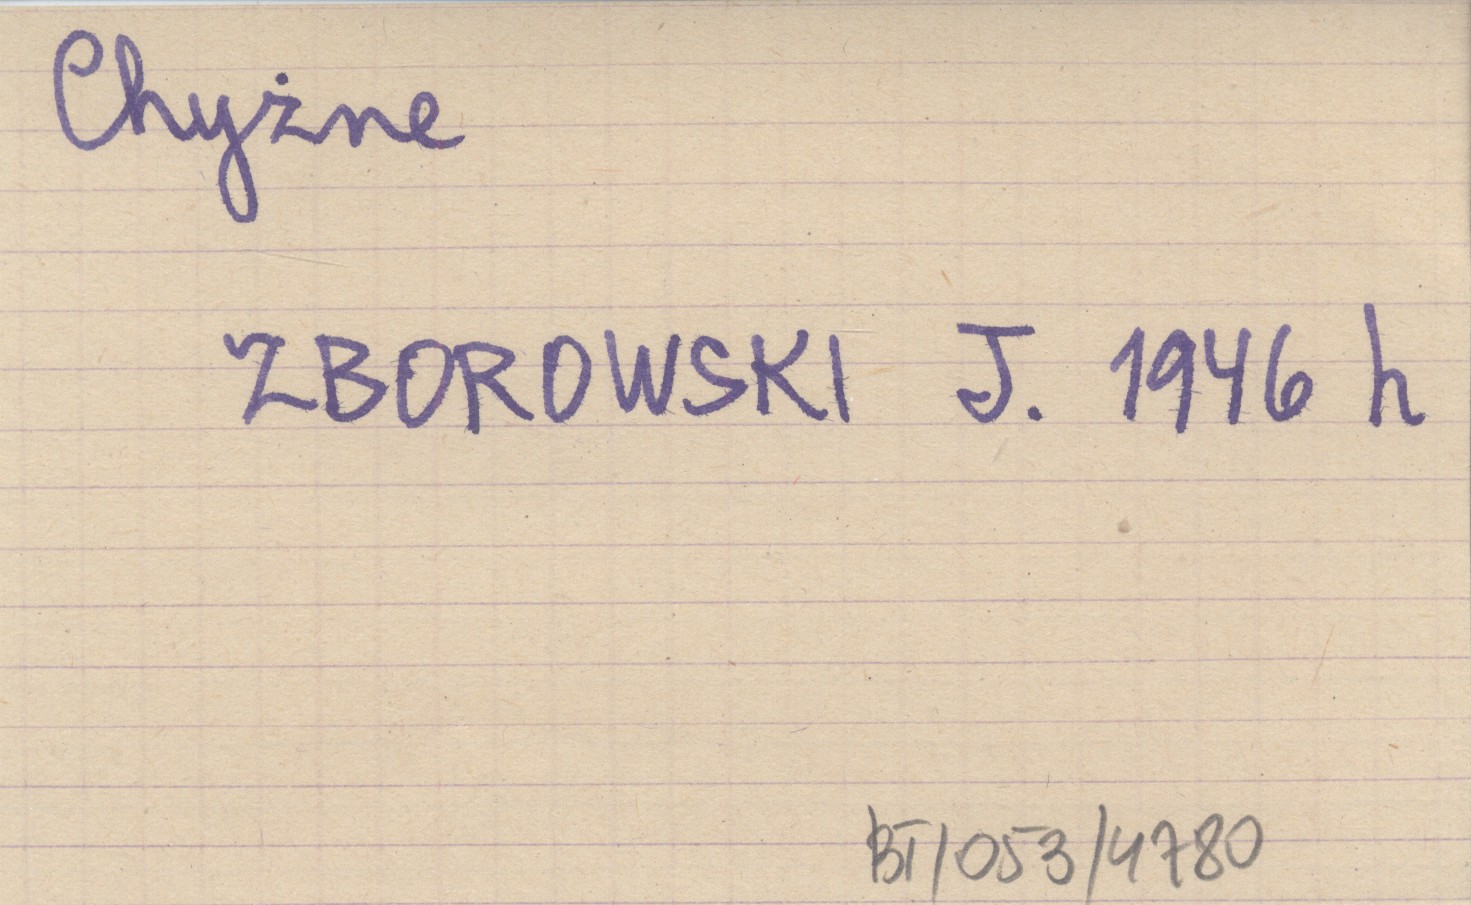 Chyżne
ZBOROWSKI J. 1946 h
BT/053/4780